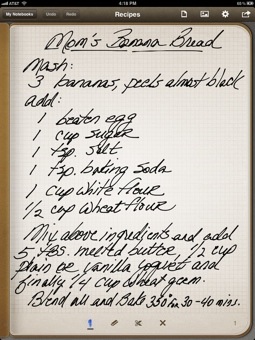 AT&T 4:18 PM
My Notebooks Undo Redo Recipes
Mom's Banana Bread
Mash:
3 bananas, peels almost black
add:
1 beaten egg
1 cup sugar
1 tsp. salt
1 tsp. baking soda
1 cup white flour
1/2 cup wheat flour
Mix above ingredients and add
5 tbs. melted butter, 1/2 cup
plain or vanilla yogurt and
finally 1/4 cup wheat germ.
Blend all and Bake 350° for 30-40 mins.
1